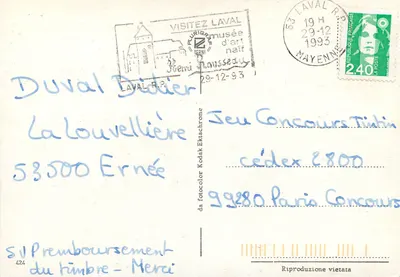 VISITEZ LAVAL
musée
d'art
naïf
Henri Rousseau
LAVAL R.P.
29-12-93
53 LAVAL R.P.
19 H
29-12
1993
MAYENNE
2,40
Duval Didier
La Louvellière
53500 Ernée
SVP remboursement
du timbre - Merci
424
da fotocolor Kodak Ektachrome
Jeu Concours Tintin
cédex 2800
99280 Paris Concours
Riproduzione vietata